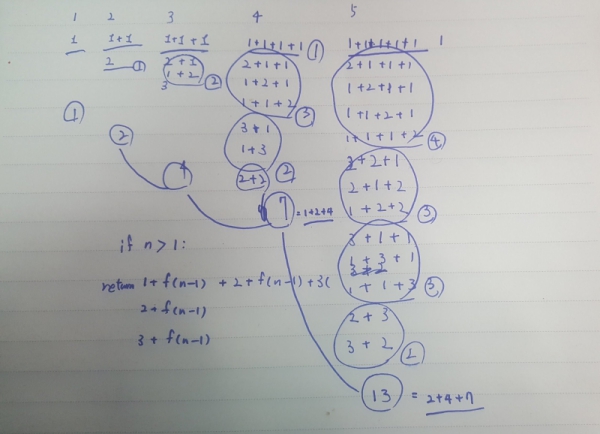 1 2 3 4 5
1
1+1
2 ①
1+1+1
2+1
1+2 ②
3
1+1+1+1 ①
2+1+1
1+2+1
1+1+2 ③
3+1
1+3 ②
2+2
1+1+1+1+1 1
2+1+1+1
1+2+1+1
1+1+2+1
1+1+1+2 ④
2+2+1
2+1+2
1+2+2 ③
3+1+1
1+3+1
1+1+3 ③
2+3
3+2
① ② 4 7 = 1+2+4
13 = 2+4+7
if n > 1:
return 1+f(n-1) + 2+f(n-1)+3(
2+f(n-1)
3+f(n-1)